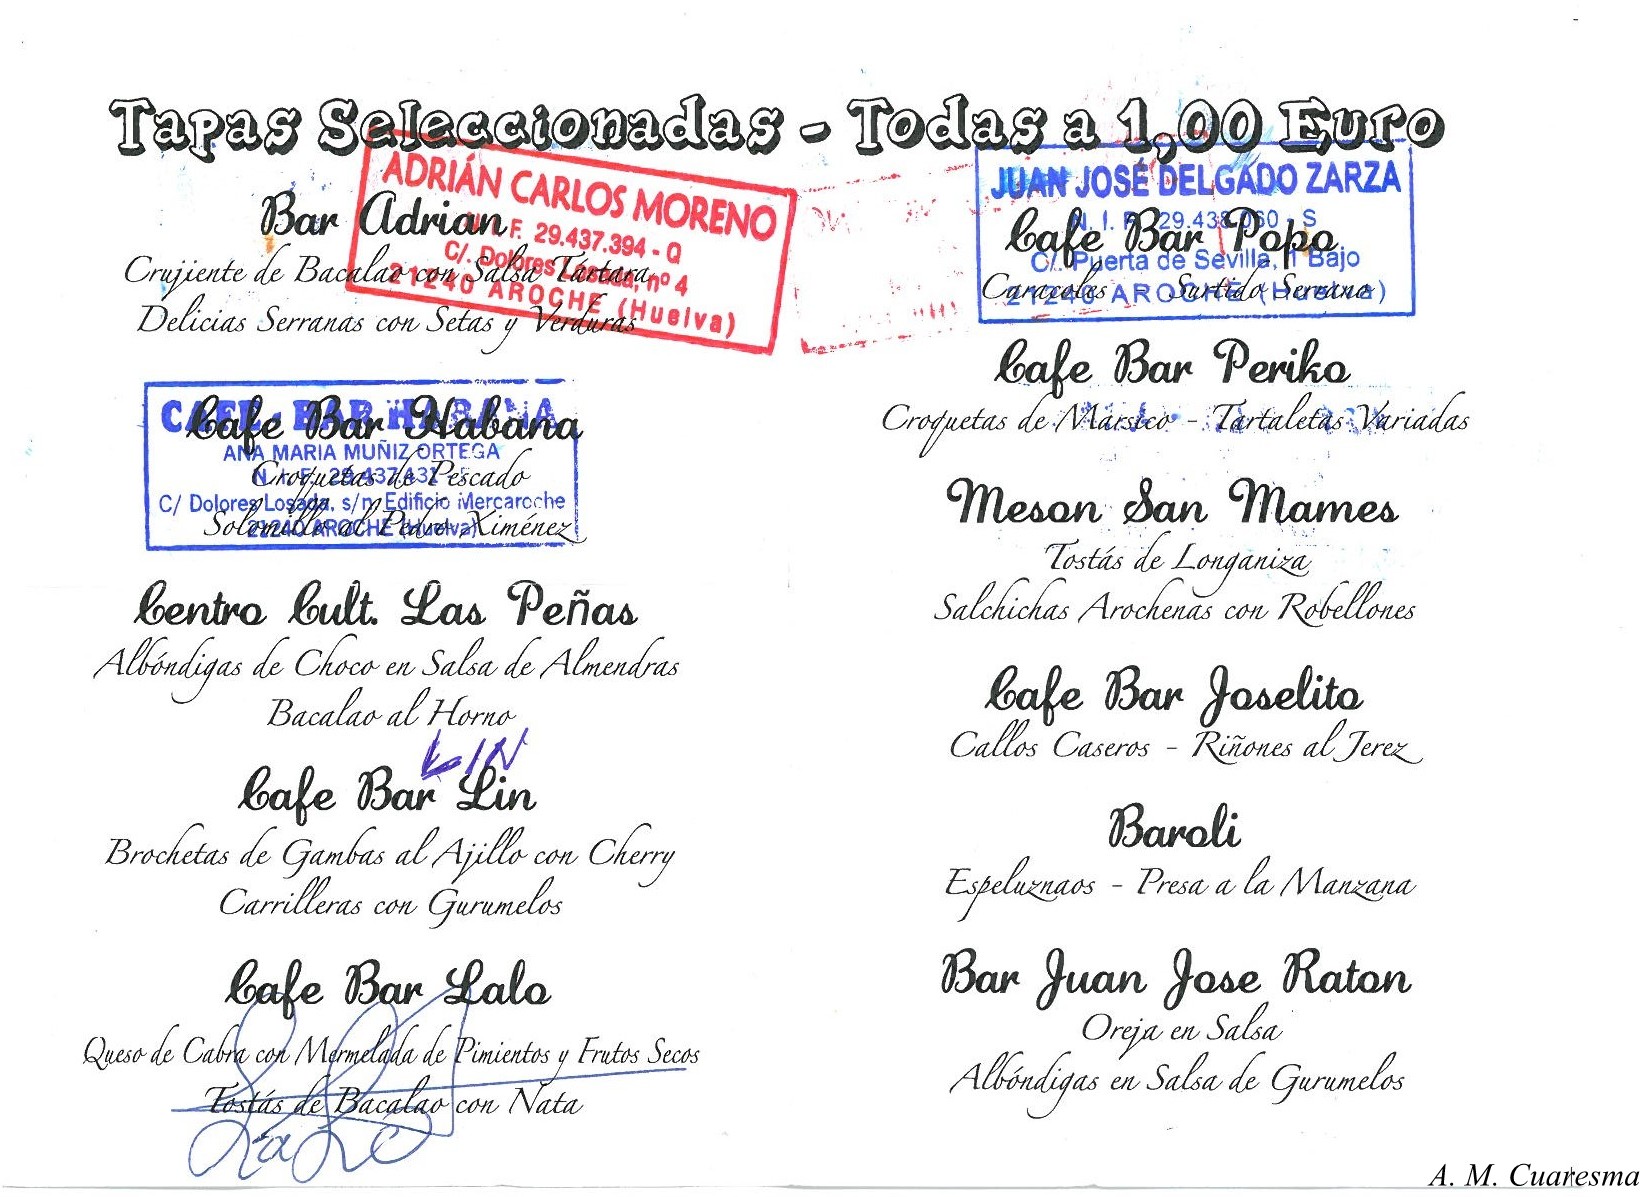 Tapas Seleccionadas - Todas a 1,00 Euro
Bar Adrian
Crujiente de Bacalao con Salsa Tártara
Delicias Serranas con Setas y Verduras
ADRIÁN CARLOS MORENO
N. I. F. 29.437.394 - Q
C/. Dolores Losada, nº 4
21240 AROCHE (Huelva)
Cafe Bar Habana
Croquetas de Pescado
Solomillo al Pedro Ximénez
CAFE - BAR HABANA
ANA MARIA MUÑIZ ORTEGA
N. I. F. 29.437.437
C/ Dolores Losada, s/n Edificio Mercaroche
21240 AROCHE (Huelva)
Centro Cult. Las Peñas
Albóndigas de Choco en Salsa de Almendras
Bacalao al Horno
LIN
Cafe Bar Lin
Brochetas de Gambas al Ajillo con Cherry
Carrilleras con Gurumelos
Cafe Bar Lalo
Queso de Cabra con Mermelada de Pimientos y Frutos Secos
Tostás de Bacalao con Nata
LaLo
Cafe Bar Popo
Caracoles - Surtido Serrano
JUAN JOSÉ DELGADO ZARZA
N. I. F. 29.438.060 - S
C/. Puerta de Sevilla, 1 Bajo
21240 AROCHE (Huelva)
Cafe Bar Periko
Croquetas de Marsico - Tartaletas Variadas
Meson San Mames
Tostás de Longaniza
Salchichas Arochenas con Robellones
Cafe Bar Joselito
Callos Caseros - Riñones al Jerez
Baroli
Espeluznaos - Presa a la Manzana
Bar Juan Jose Raton
Oreja en Salsa
Albóndigas en Salsa de Gurumelos
A. M. Cuaresma